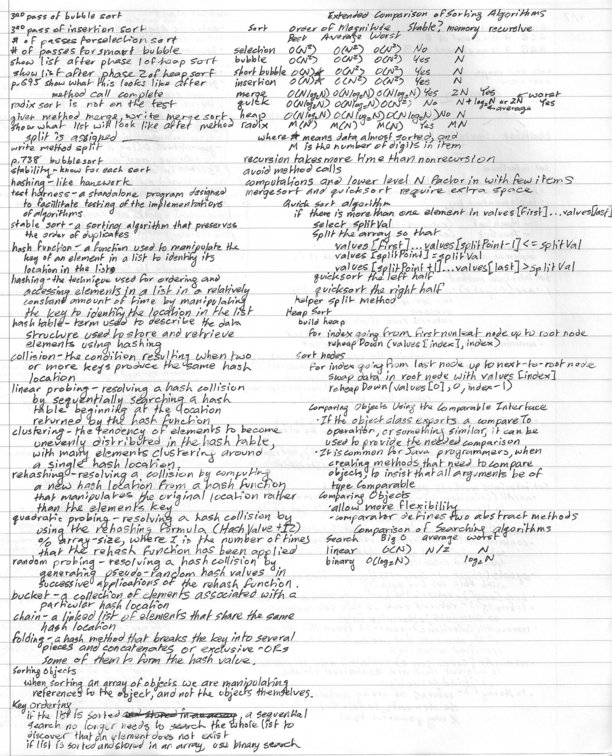 3RD pass of bubble sort
3RD pass of insertion sort
# of passes for selection sort
# of passes for smart bubble
show list after phase 1 of heap sort
show list after phase 2 of heap sort
p.695 show what this looks like after
method call complete
radix sort is not on the test
given method merge, write merge sort,
show what list will look like after method
split is assigned
write method split
p.738 bubblesort
stability - know for each sort
hashing - like homework
test harness - a standalone program designed
to facilitate testing of the implementations
of algorithms
stable sort - a sorting algorithm that preserves
the order of duplicates
hash function - a function used to manipulate the
key of an element in a list to identify its
location in the list
hashing - the technique used for ordering and
accessing elements in a list in a relatively
constant amount of time by manipulating
the key to identify the location in the list
hash table - term used to describe the data
structure used to store and retrieve
elements using hashing
collision - the condition resulting when two
or more keys produce the same hash
location
linear probing - resolving a hash collision
by sequentially searching a hash
table beginning at the location
returned by the hash function
clustering - the tendency of elements to become
unevenly distributed in the hash table,
with many elements clustering around
a single hash location.
rehashing - resolving a collision by computing
a new hash location from a hash function
that manipulates the original location rather
than the elements key
quadratic probing - resolving a hash collision by
using the rehashing formula (HashValue ± I2)
% array-size, where I is the number of times
that the rehash function has been applied
random probing - resolving a hash collision by
generating pseudo-random hash values in
successive applications of the rehash function.
bucket - a collection of elements associated with a
particular hash location
chain - a linked list of elements that share the same
hash location
folding - a hash method that breaks the key into several
pieces and concatenates or exclusive-ORs
some of them to form the hash value.
Sorting Objects
when sorting an array of objects we are manipulating
references to the object, and not the objects themselves.
Key ordering
if the list is sorted and stored in an array, a sequential
search no longer needs to search the whole list to
discover that an element does not exist
if list is sorted and stored in an array, use binary search
Extended Comparison of Sorting Algorithms
Sort Order of Magnitude Stable? memory recursive
Best Average Worst
selection O(N²) O(N²) O(N²) No N
bubble O(N²) O(N²) O(N²) Yes N
short bubble O(N)* O(N²) O(N²) Yes N
insertion O(N)* O(N²) O(N²) Yes N
merge O(Nlog₂N) O(Nlog₂N) O(Nlog₂N) Yes 2N Yes
quick O(Nlog₂N) O(Nlog₂N) O(N²) No N+log₂N or 2N Yes
←worst
←average
heap O(Nlog₂N) O(Nlog₂N) O(Nlog₂N) No N
radix M(N) M(N) M(N) Yes MN
where * means data almost sorted, and
M is the number of digits in item
recursion takes more time than nonrecursion
avoid method calls
computations and lower level N factor in with few items
mergesort and quicksort require extra space
Quick sort algorithm
if there is more than one element in values[first]...values[last]
select splitVal
Split the array so that
values[first]...values[splitPoint-1]<=splitVal
values[splitPoint]=splitVal
values[splitPoint+1]...values[last]>splitVal
quicksort the left half
quicksort the right half
helper split method
Heap Sort
build heap
for index going from first nonleaf node up to root node
reheapDown(values[index], index)
sort nodes
for index going from last node up to next-to-root node
Swap data in root node with values[index]
reheapDown(values[0], 0, index-1)
Comparing Objects Using the Comparable Interface
-If the object class exports a compareTo
operation, or something similar, it can be
used to provide the needed comparison
-It is common for Java programmers, when
creating methods that need to compare
objects, to insist that all arguments be of
type Comparable
Comparing Objects
-allow more flexibility
-comparator defines two abstract methods
Comparison of Searching algorithms
search Big O average worst
linear O(N) N/2 N
binary O(log₂N) log₂N